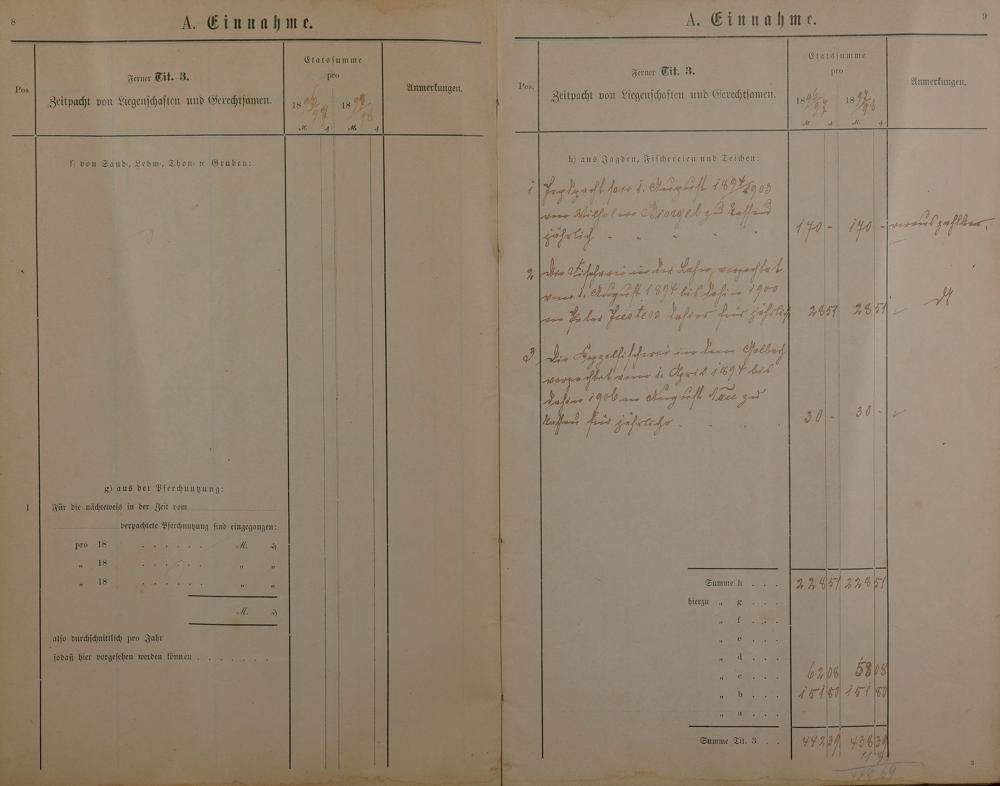 8
A. Einnahme.
Pos.
Ferner Tit. 3.
Zeitpacht von Liegenschaften und Gerechtsamen.
Etatssumme
pro
18 96/97 18 97/98
M. ₰ M. ₰
Anmerkungen.
f) von Sand-, Lehm-, Thon- ꝛc Gruben:
g) aus der Pferchnutzung:
1 Für die nächteweis in der Zeit vom
verpachtete Pferchnutzung sind eingegangen:
pro 18 . . . . . . M. ₰
„ 18 . . . . . . „ „
„ 18 . . . . . . „ „
M. ₰
also durchschnittlich pro Jahr
sodaß hier vorgesehen werden können . . . . . . .
A. Einnahme.
9
Pos.
Ferner Tit. 3.
Zeitpacht von Liegenschaften und Gerechtsamen.
Etatssumme
pro
18 96/97 18 97/98
M. ₰ M. ₰
Anmerkungen.
h) aus Jagden, Fischereien und Teichen:
1 Jagdpacht vom 1. August 1894/1903
von Wilhelm zu Nassau
jährlich 170 - 170 - vorauszahlbar.
2 Die Fischerei in der Lahn, verpachtet
vom 1. August 1894 bis dahin 1900
an Peter dahier für jährlich 28 51 28 51 dt
3 Die Koppelfischerei in dem Gelbach
verpachtet vom 1. April 1894 bis
dahin 1906 an August zu
Nassau für jährlich . . . 30 - 30 -
Summe h . . . 228 51 228 51
hierzu „ g . . .
„ f . . .
„ e . . .
„ d . . .
„ c . . . 62 08 58 08
„ b . . . 151 80 151 80
„ a . . .
Summe Tit. 3 . . 442 39 438 39
2